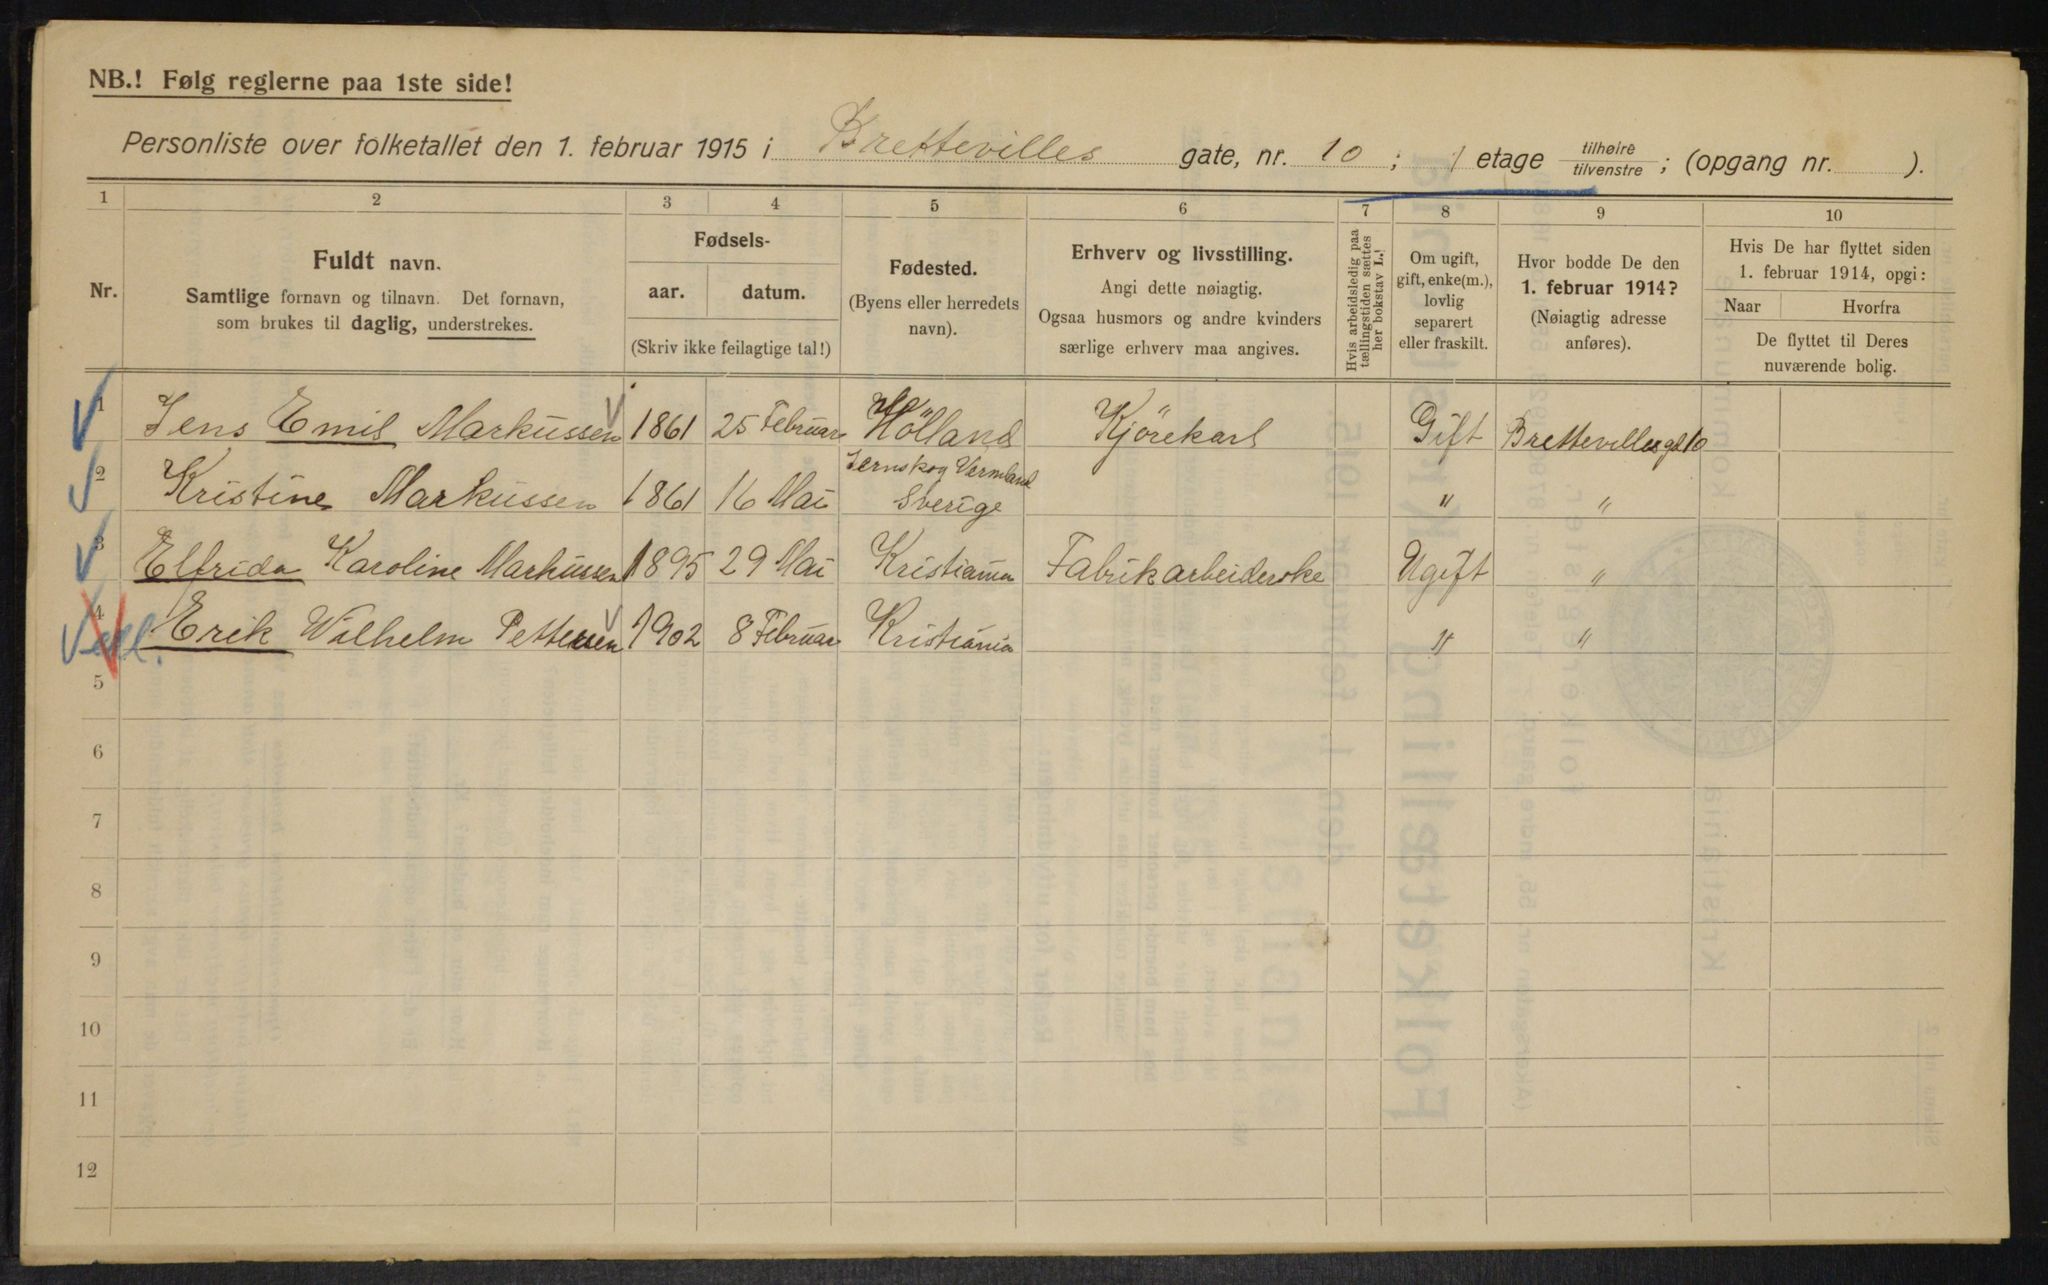 NB.! Følg reglerne paa 1ste side!
Personliste over folketallet den 1. februar 1915 i Brettevilles gate, nr. 10 ; 1 etage tilhøire tilvenstre ; (opgang nr. ).
1 2 3 4 5 6 7 8 9 10
Nr.
Fuldt navn.
Samtlige fornavn og tilnavn. Det fornavn,
som brukes til daglig, understrekes.
Fødsels-
aar. datum.
(Skriv ikke feilagtige tal!)
Fødested.
(Byens eller herredets
navn).
Erhverv og livsstilling.
Angi dette nøiagtig.
Ogsaa husmors og andre kvinders
særlige erhverv maa angives.
Hvis arbeidsledig paa
tællingstiden sættes
her bokstav L.!
Om ugift,
gift, enke(m.),
lovlig
separert
eller fraskilt.
Hvor bodde De den
1. februar 1914?
(Nøiagtig adresse
anføres).
Hvis De har flyttet siden
1. februar 1914, opgi:
Naar Hvorfra
De flyttet til Deres
nuværende bolig.
1 Jens Emil Markussen 1861 25 Februar Hölland Kjörekarl Gift Brettevillesgt 10
Jernskog Vermland
2 Kristine Markussen 1861 16 Mai Sverige " "
3 Elfrida Karoline Markussen 1895 29 Mai Kristiania Fabrikarbeiderske Ugift "
4 Erik Wilhelm Pettersen 1902 8 Februar Kristiania " "
5
6
7
8
9
10
11
12